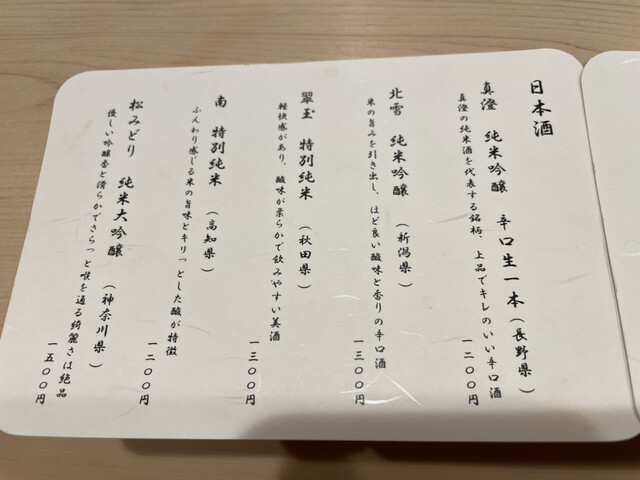 日本酒
真澄 純米吟醸 辛口生一本(長野県)
真澄の純米酒を代表する銘柄、上品でキレのいい辛口酒
一二〇〇円
北雪 純米吟醸 (新潟県)
米の旨みを引き出し、ほど良い酸味と香りの辛口酒
一三〇〇円
翠玉 特別純米 (秋田県)
軽快感があり、酸味が柔らかで飲みやすい美酒
一三〇〇円
南 特別純米 (高知県)
ふんわり感じる米の旨味とキリっとした酸が特徴
一二〇〇円
松みどり 純米大吟醸 (神奈川県)
優しい吟醸香と滑らかでさらっと喉を通る綺麗さは絶品
一五〇〇円